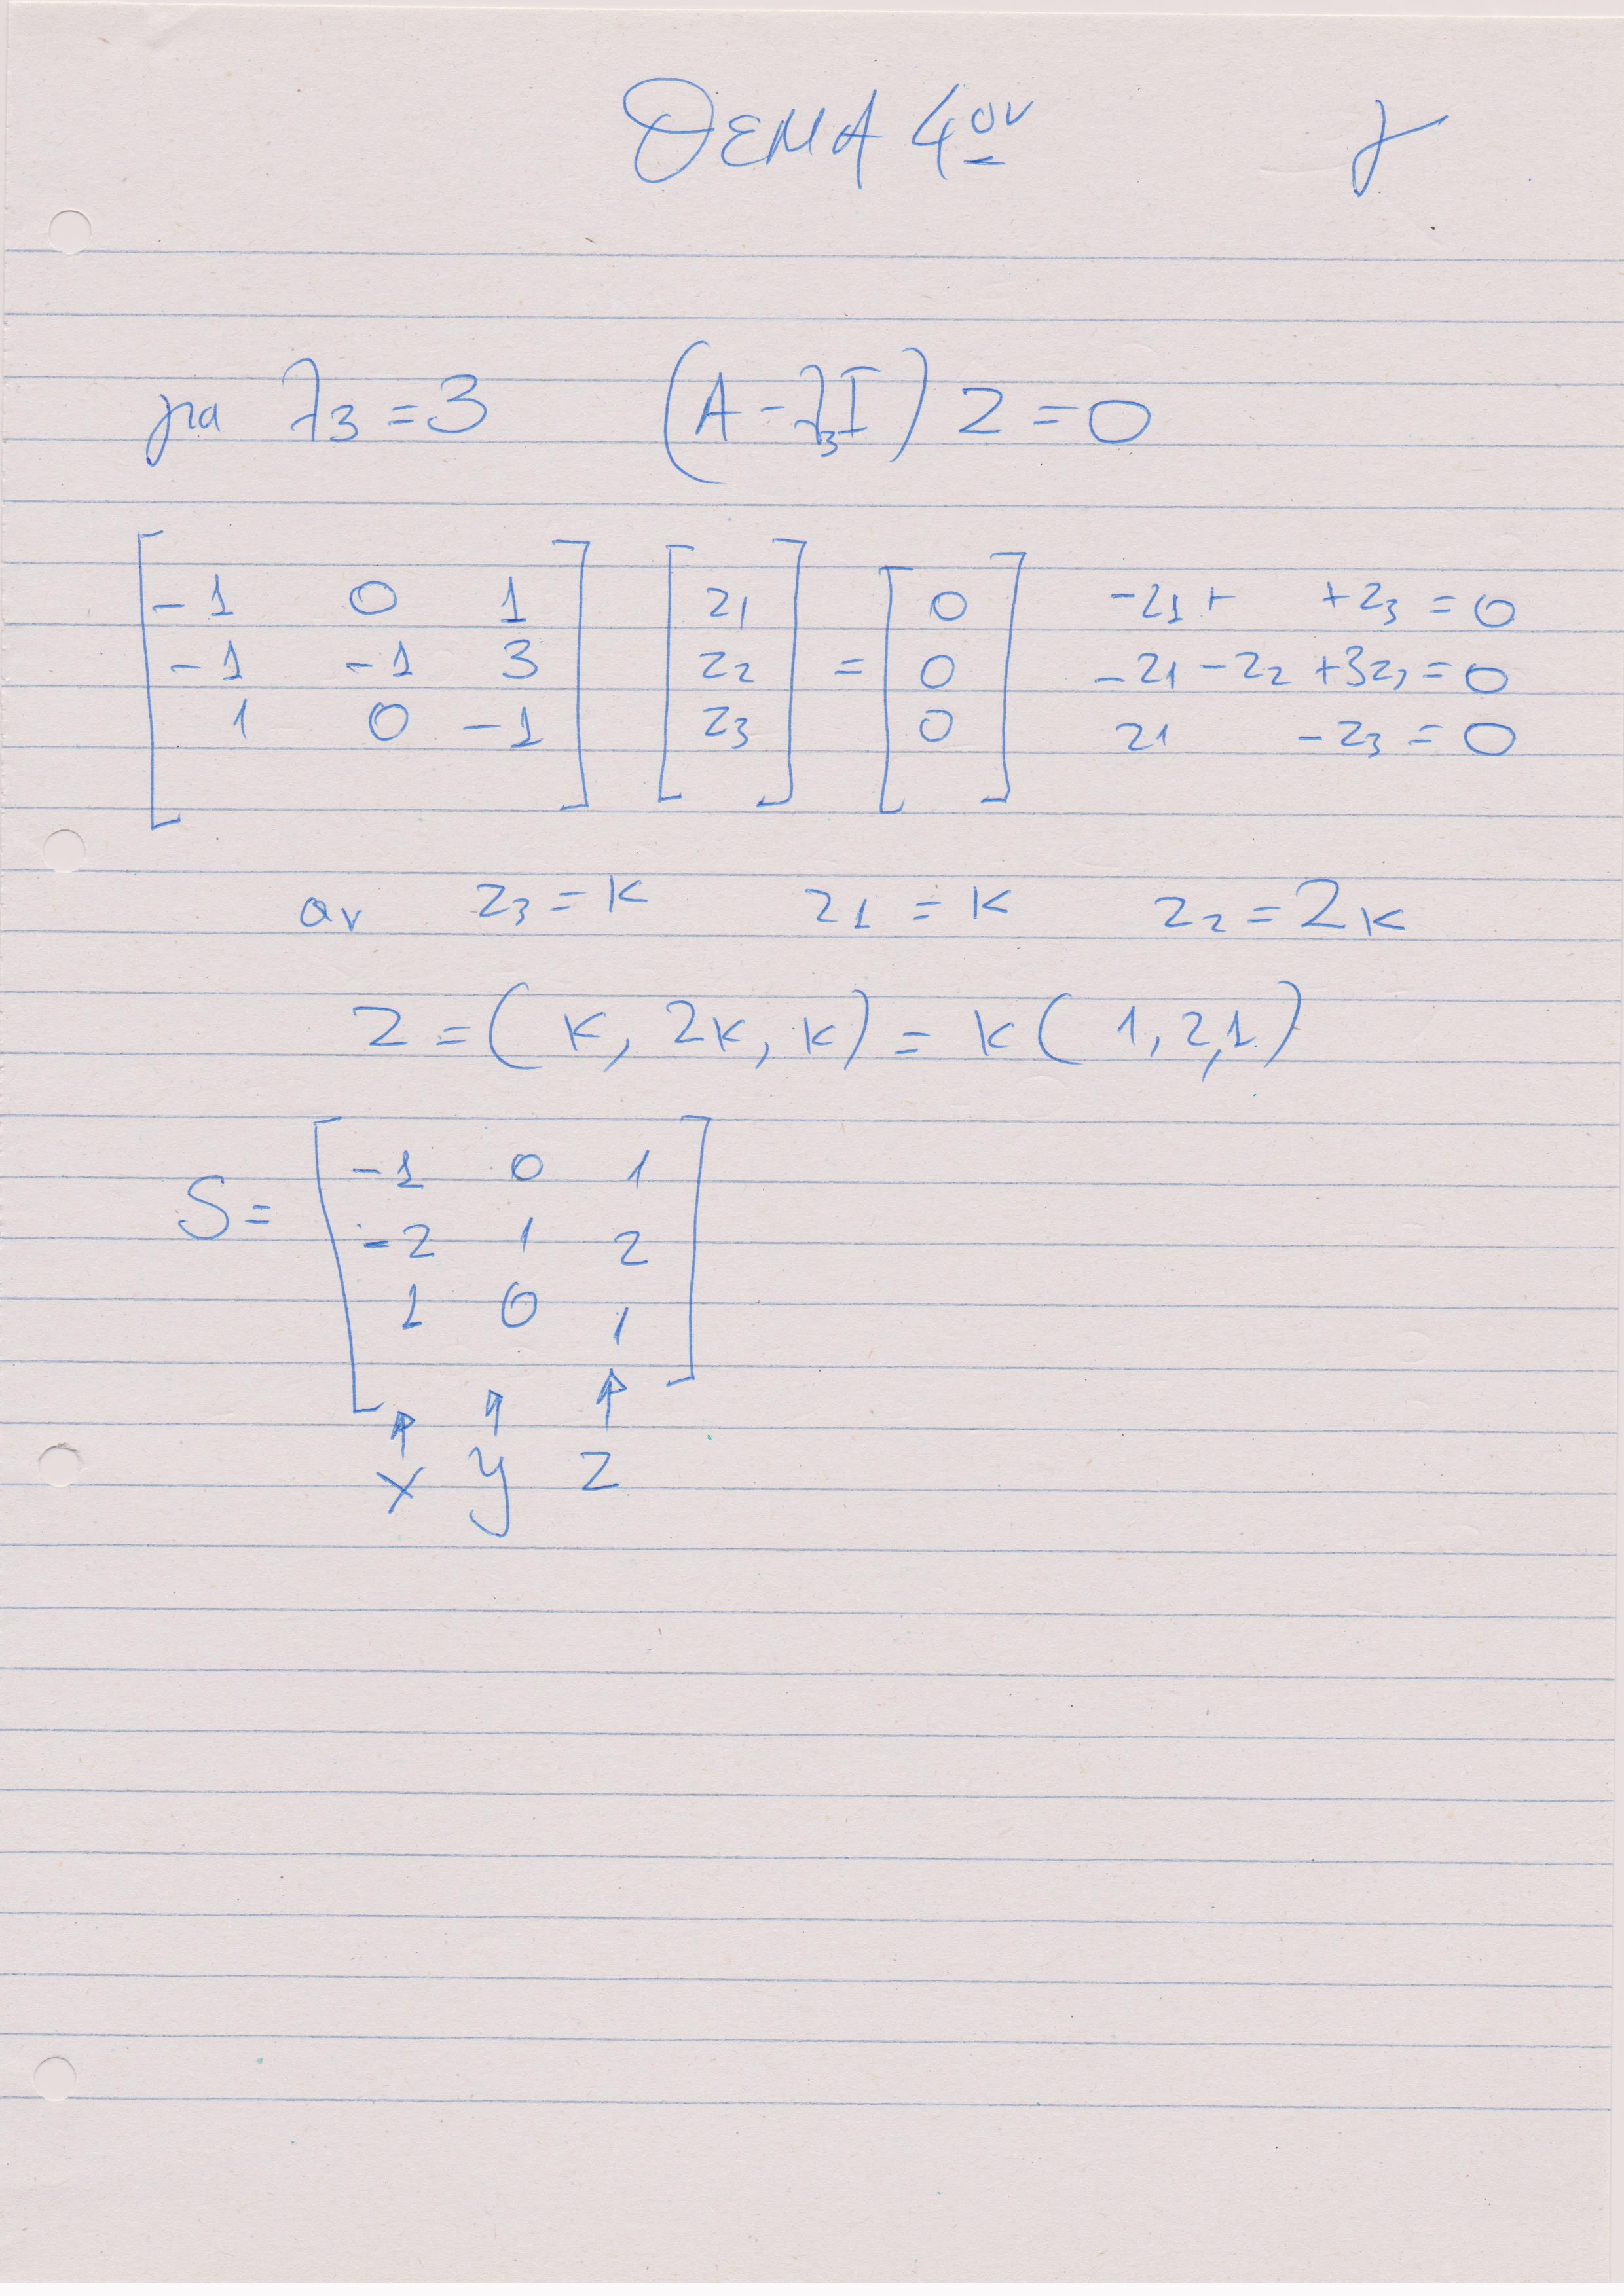 ΘΕΜΑ 4ον γ
για λ3 = 3 (A - λ3I) z = 0
[ -1 0 1 ] [ z1 ] = [ 0 ] -z1 + + z3 = 0
[ -1 -1 3 ] [ z2 ] [ 0 ] -z1 - z2 + 3z3 = 0
[ 1 0 -1 ] [ z3 ] [ 0 ] z1 - z3 = 0
αν z3 = k z1 = k z2 = 2k
z = (k, 2k, k) = k (1, 2, 1)
S = [ -1 0 1 ]
[ -2 1 2 ]
[ 1 0 1 ]
↑ ↑ ↑
x y z